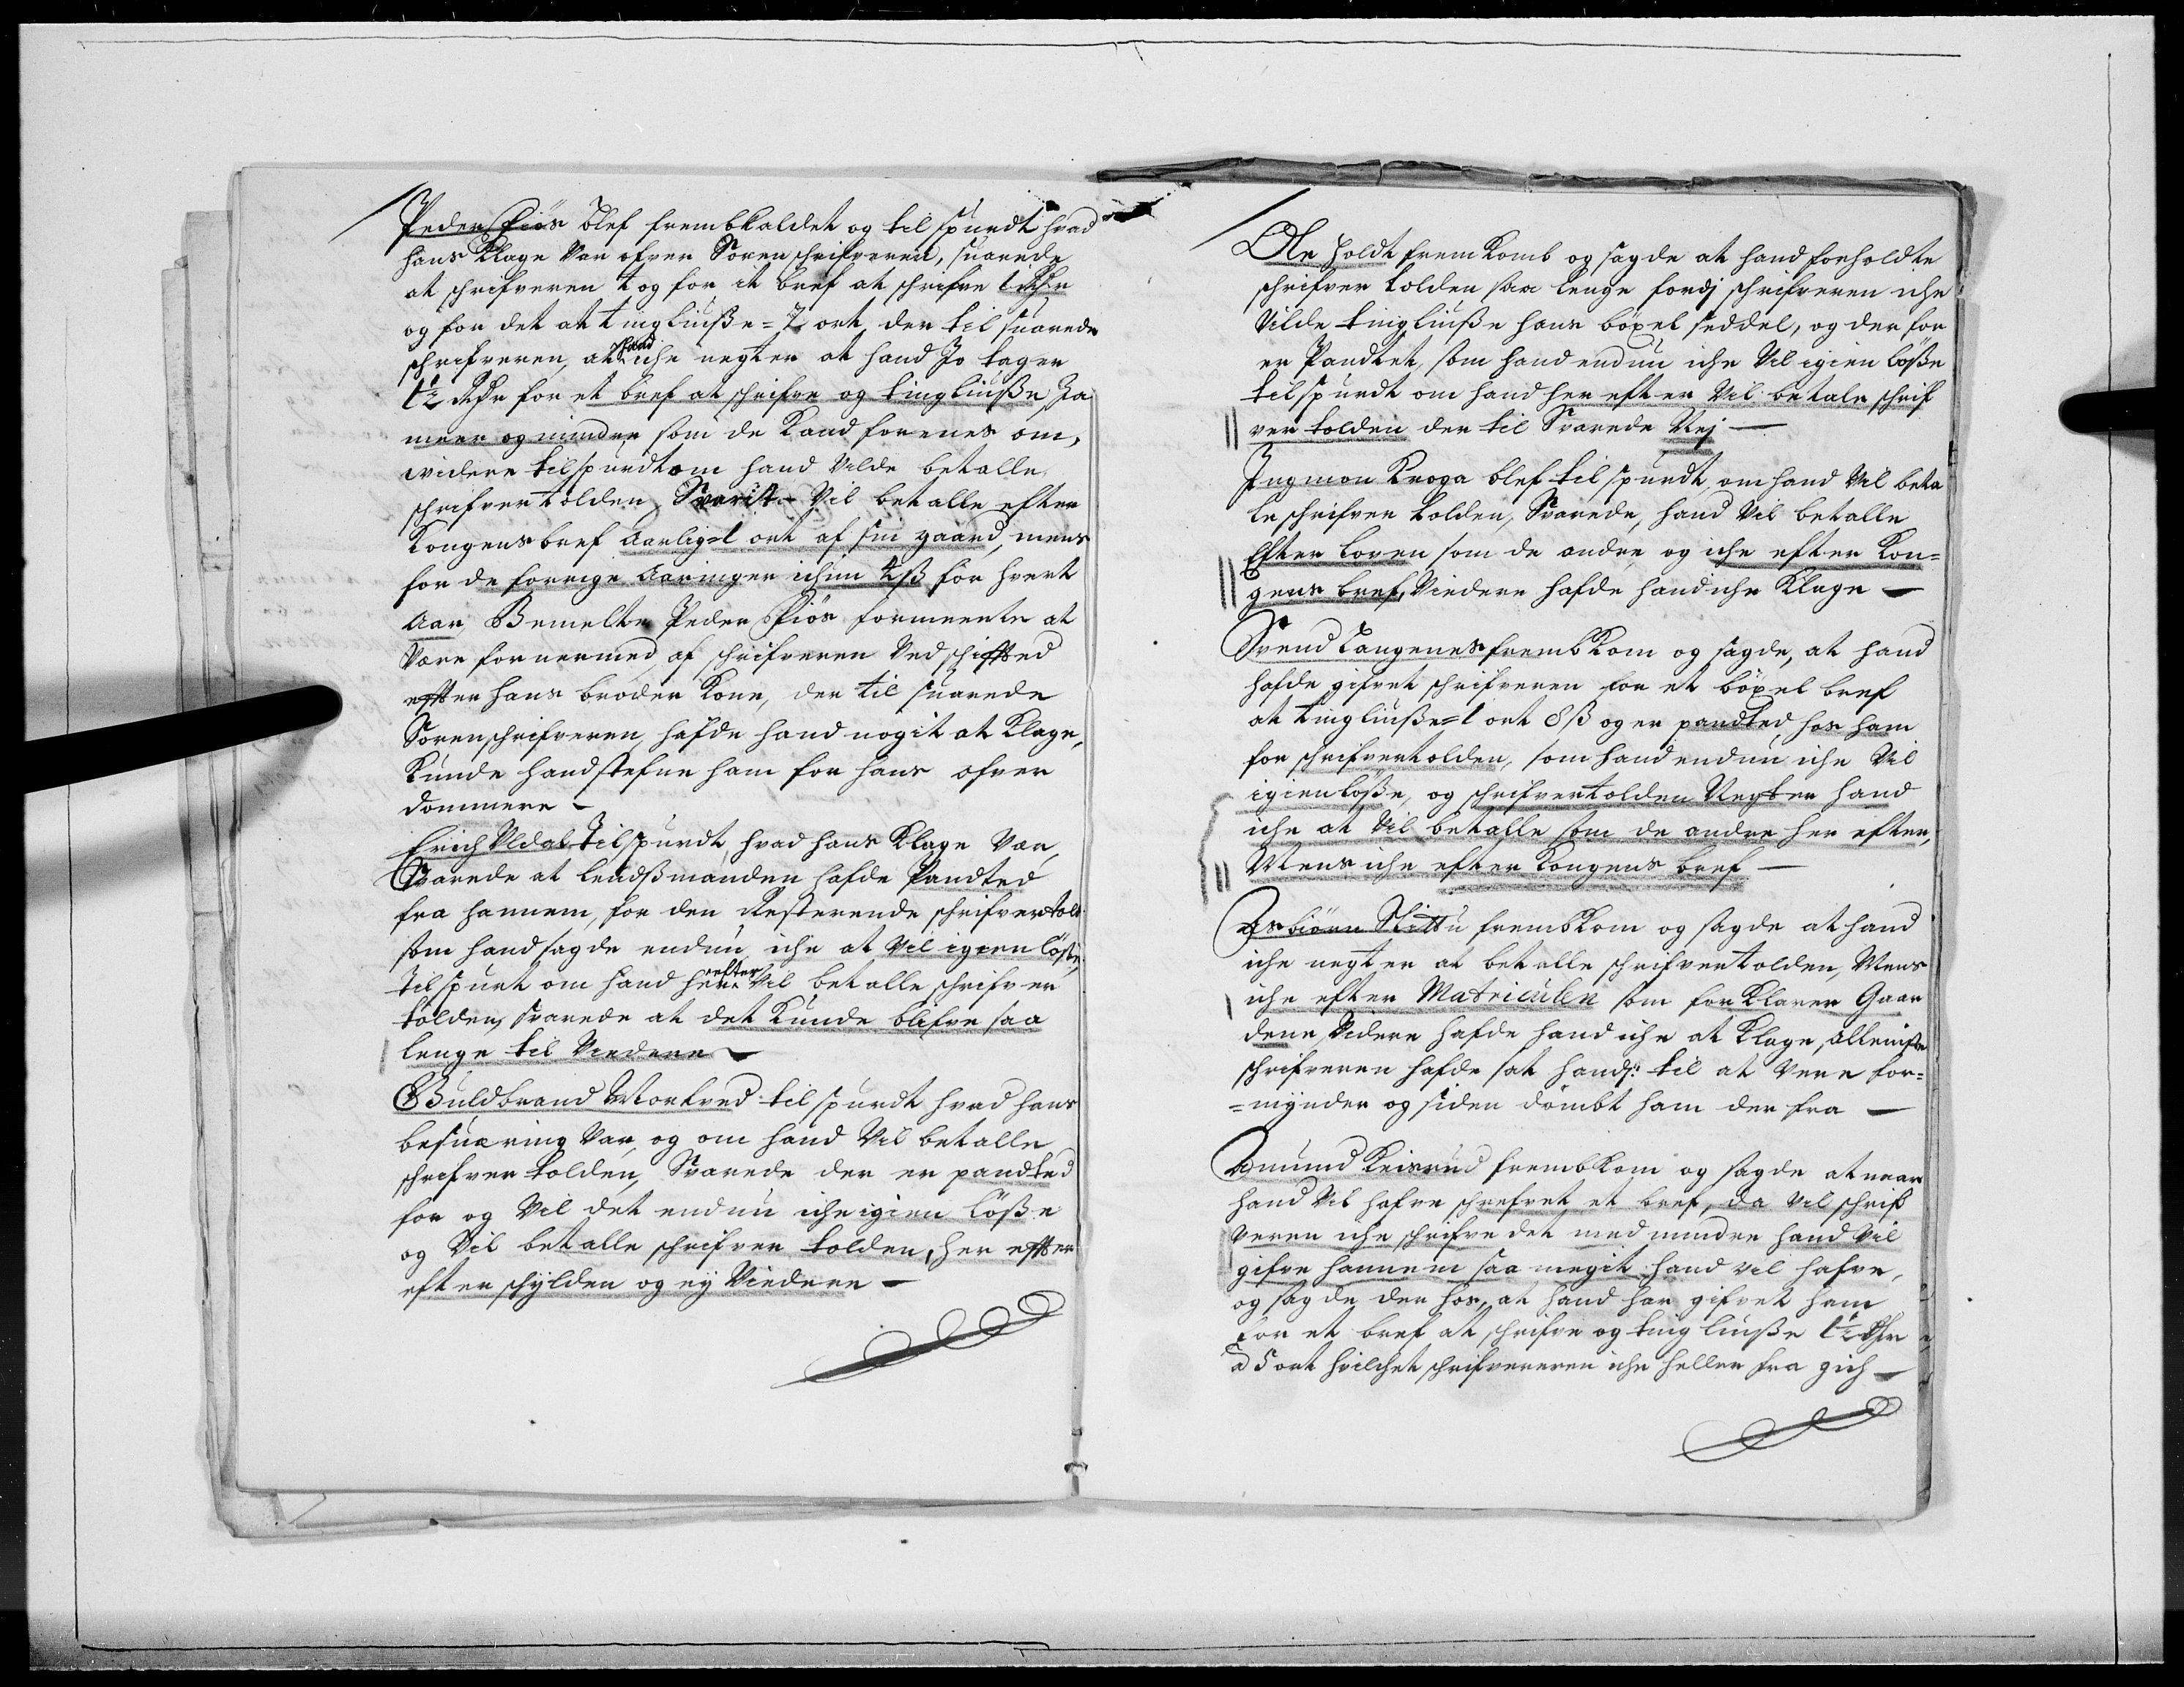 Peder Fiös blef frembkaldet og til spurdt hvad
hans Klage Var ofver Sorenschrifveren, suarede
at schrifveren tog for it bref at schrifve 1 Rdr
og for det at tingliusse = 7 ort, der til suarede
schrifveren, at hand iche negter at hand Jo tager
1½ Rdr for et bref at schrifve og tingliusse Ja
meer og mindre som de Kand forenes om,
widere tilspurdt om hand Vilde betalle
schrifvertolden, Svarit Vil betalle efter
Kongens bref Aarlig 1 ort af sin gaard, mens
for de forrige Aaringer ichun 4 ß for hvert
Aar, Bemelte Peder Fiös formeente at
Være fornermed af schrifveren Ved schifted
efter hans broder Kone, der til suarede
Sorenschrifveren, hafde hand nogit at Klage,
Kunde hand stefne ham for hans ofver
dommere -
Erich Uldal Tilspurdt, hvad hans Klage Var,
Svarede at lendßmanden hafde Pandted
fra hannem, for den Resterende schrifvertold
som hand sagde endnu iche at Vil igien löse,
Tilspurt om hand her efter Vil betalle schrifver
tolden, svarede at det Kunde blifve saa
lenge til Viedere -
Guldbrand Mortved til spurdt hvad hans
besuæring Var, og om hand Vil betalle
schrifver tolden, Svarede der er pandted
for og Vil det endnu iche igien lösse
og Vil betalle schrifver tolden, her efter
efter schylden og ey Viedere -
Ole Holdt frem Komb og sagde at hand forholdte
schrifver tolden saa lenge fordj schrifveren iche
Vilde tingliusse hans böxel seddel, og der for
er Pandtet, som hand endnu iche Vil igien lösse
tilspurdt om hand her efter Vil betale schrif
ver tolden der til Svarede Nej -
Ingmon Kroga blef til spurdt, om hand Vil beta
le schrifver tolden, Svarede, hand Vil betalle
Efter loven som de andre og iche efter Kon=
gens bref, Viedere hafde hand iche Klage -
Svend Langenes frembKom og sagde, at hand
hafde gifvet schrifveren for et böxel bref
at tingliusse = 1 ort 8 ß og er pandted, hos ham
for schrifvertolden, som hand endnu iche Vil
igien lösse, og schrifvertolden Negter hand
iche at Vil betalle som de andre her efter,
Mens iche efter Kongens bref -
Asbiörn Slettu frembKom og sagde at hand
iche negter at betalle schrifvertolden, Mens
iche efter Matriculen som forklarer Gaar
dene, Videre hafde hand iche at Klage, alleniste
schrifveren hafde sat hand: til at Vere for=
=mynder og siden dömbt ham der fra -
Amund Keisrud frembkom og sagde at naar
hand Vil hafve schrefvet et bref, da Vil schrif
veren iche schrifve det med mindre hand Vil
gifve hannem saa megit hand vil hafve,
og sagde der hos, at hand har gifvet ham
for et bref at schrifve og tingliusse 1½ Rdr
a 5 ort hvilchet schrifvereren iche heller fra gich -